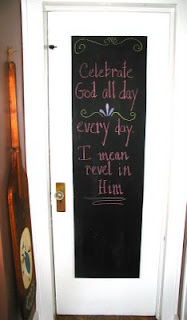 Celebrate
God all day
every day.
I mean
revel in
Him